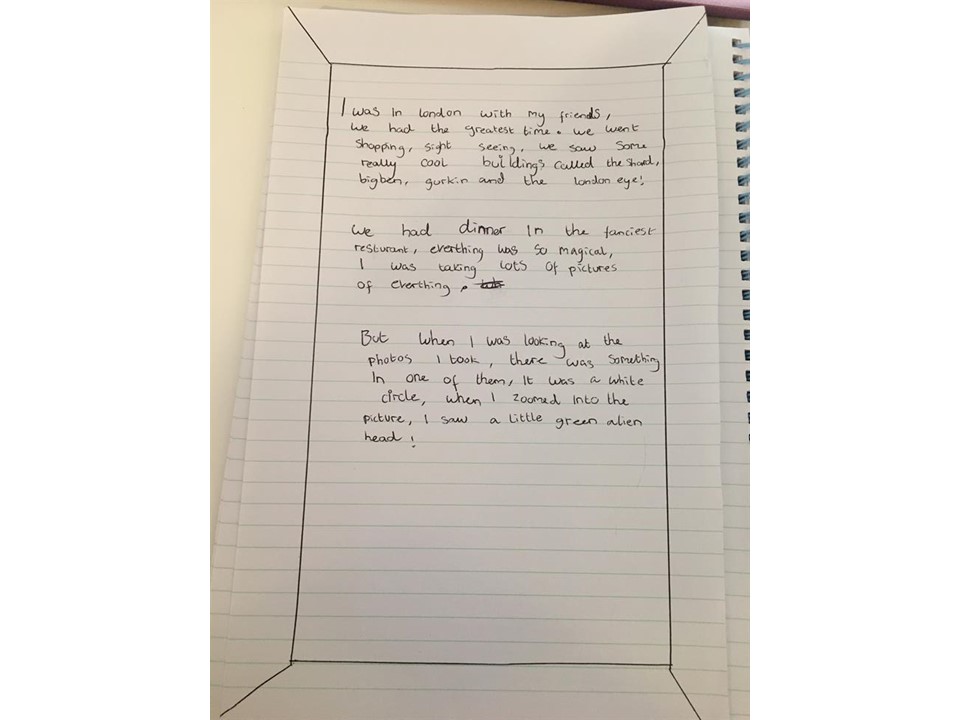 I was In london with my friends,
we had the greatest time. we went
shopping, sight seeing, we saw some
really cool buildings called the shard,
bigben, gurkin and the london eye!
we had dinner In the fanciest
resturant, everthing was so magical,
I was taking lots of pictures
of everthing.
But when I was looking at the
photos I took, there was something
In one of them, It was a white
circle, when I zoomed Into the
picture, I saw a little green alien
head!